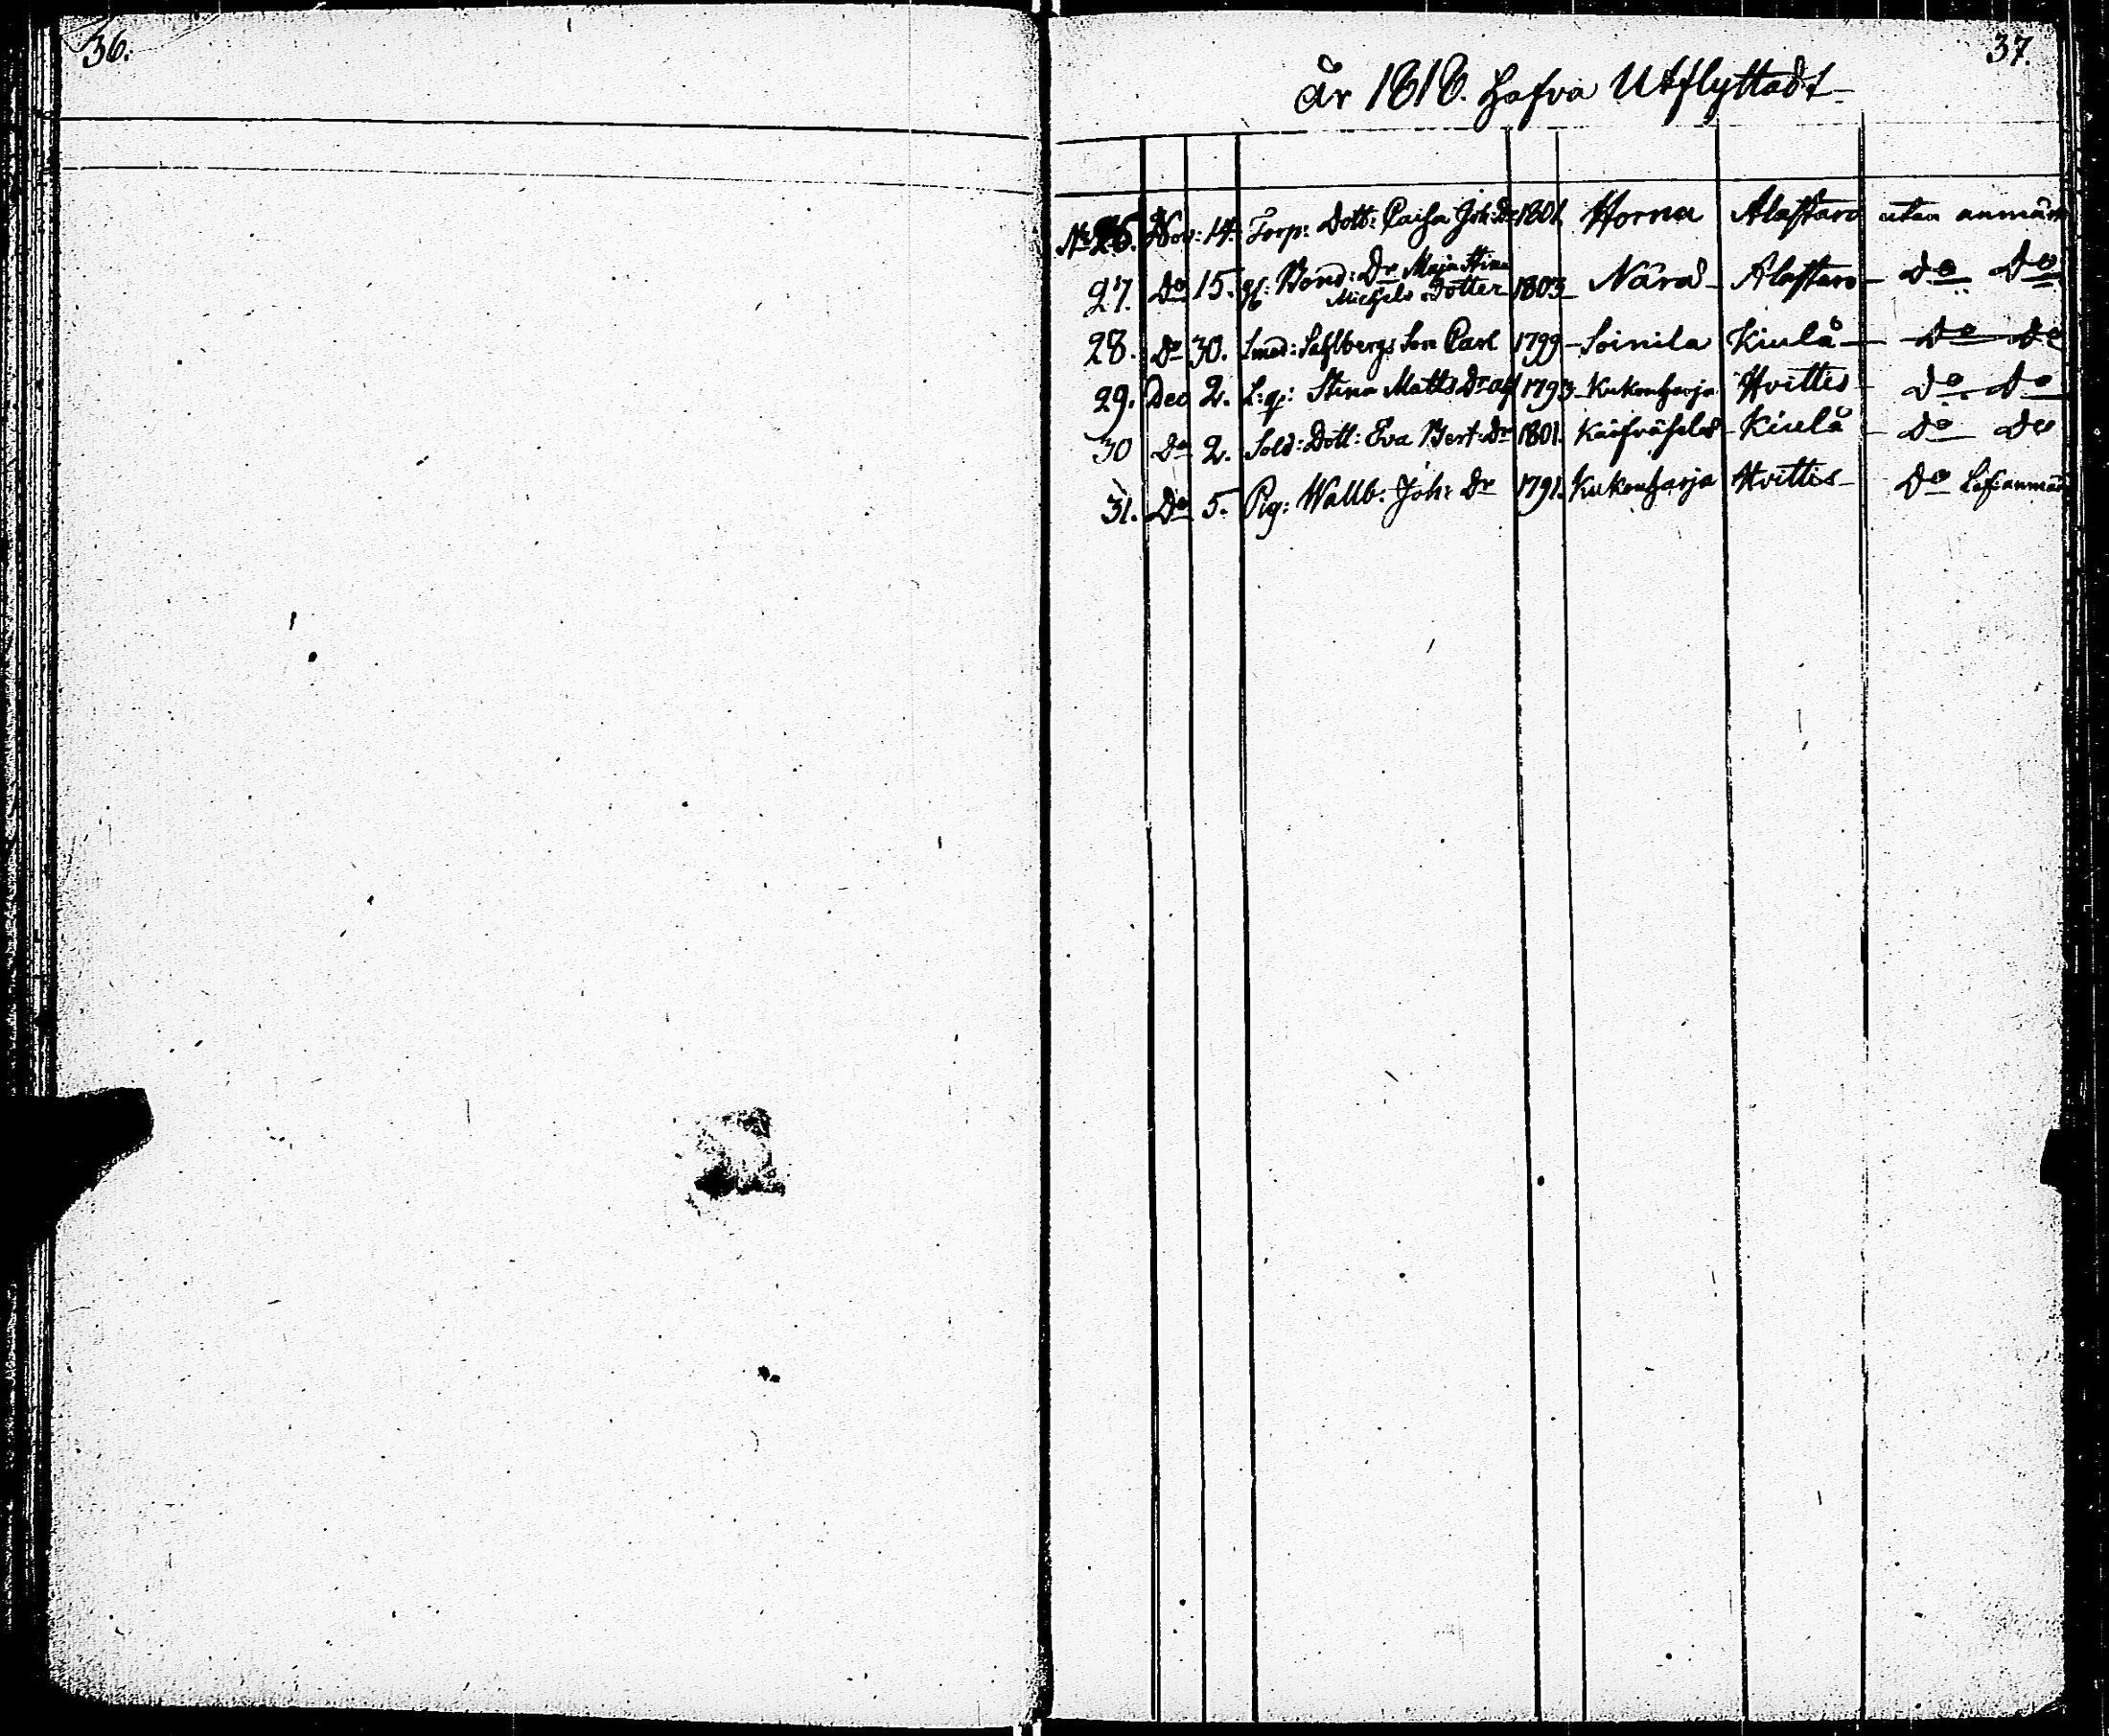 36.
37.
År 1818. hafva Utflyttadt
No 26. Nov: 14. Torp: Dott: Caisa Joh: Dr 1801. Horna Alastaro utan anmärk
27. Do 15. gl: Bond: Dr Maja Stina Michels Dotter 1803 Närä Alastaro Do Do
28. Do 30. Smed: Sahlbergs Son Carl 1799 Soinila Kiulå Do Do
29. Dec 2. L: q: Stina Matts Dr 1793 Kukonharja Hvittis Do Do
30 Do 2. Sold: Dott: Eva Bert: Dr 1801. Kiulå Do Do
31. Do 5. Pig: Wallb: Joh: Dr 1791. Kukonharja Hvittis Do